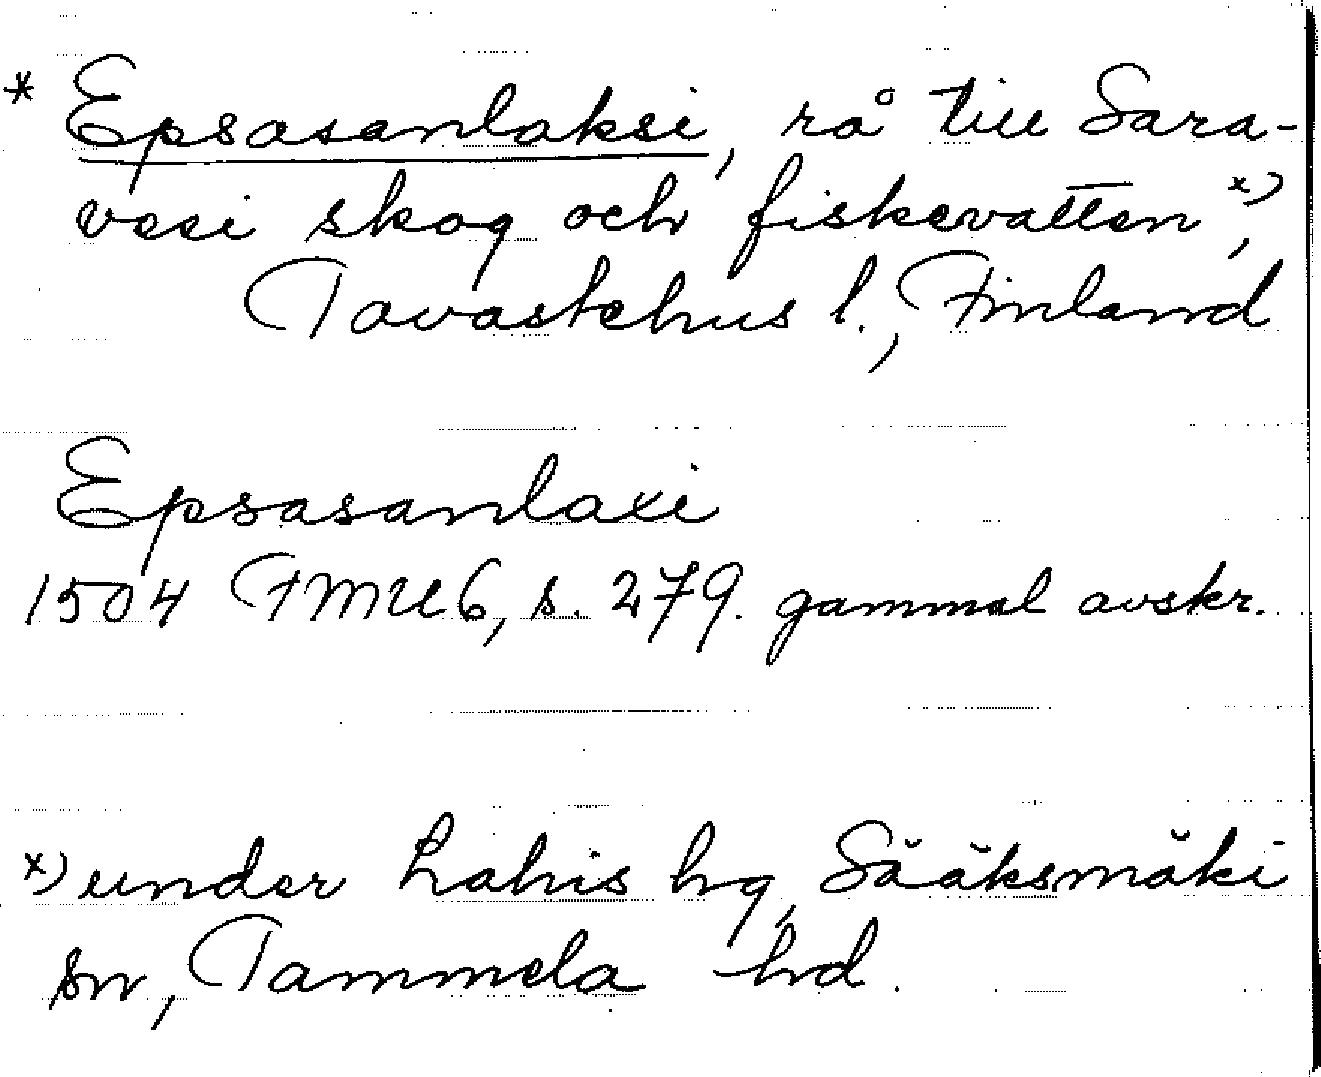 * Epsasanlaksi, rå till Sara-
vesi skog och fiskevatten x),
Tavastehus l., Finland
Epsasanlaxi
1504 FMU 6, s. 279. gammal avskr.
x) under Lahis hg, Sääksmäki
sn, Tammela hd.